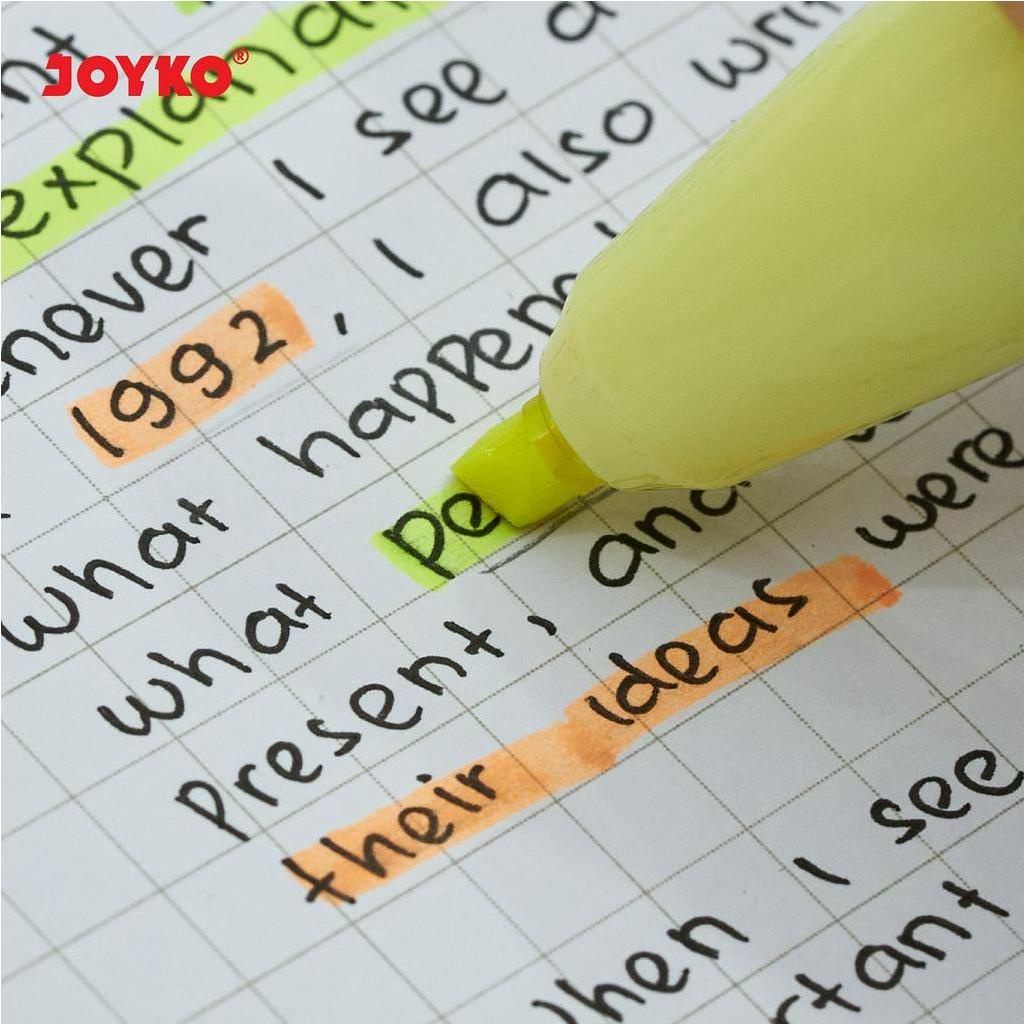 JOYKO®
explanat
never I see a
1992, I also writ
what happen
what pe
present, and
their ideas were
when I see
rtant